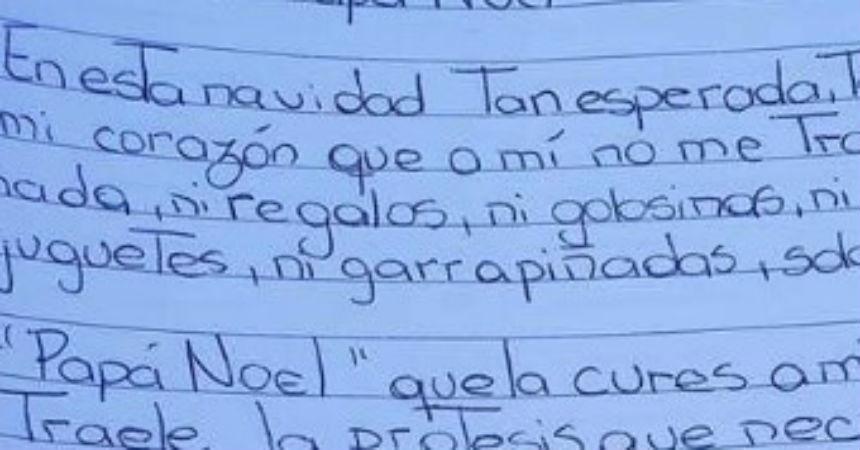 Papá Noel
En esta navidad Tan esperada,
mi corazón que a mí no me
nada, ni regalos, ni golosinas, ni
juguetes, ni garrapiñadas,
"Papá Noel" que la cures a
Traele la prótesis que